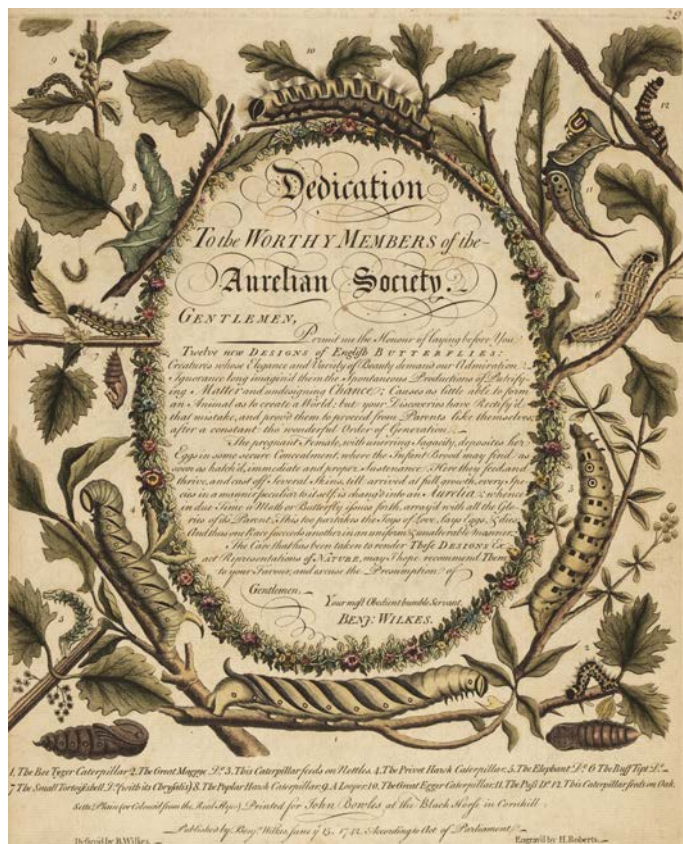 29
10
9
12
8
11
6
7
7
3
4
3
2
1
Dedication
To the WORTHY MEMBERS of the
Aurelian Society.
GENTLEMEN,
Permit me the Honour of laying before You
Twelve new DESIGNS of English BUTTERFLIES:
Creatures whose Elegance and Variety of Beauty demand our Admiration.
Ignorance long imagin'd them the Spontaneous Productions of Putrify-
ing Matter and undesigning Chance; Causes as little able to form
an Animal as to create a World: but your Discoveries have Rectify'd
that mistake, and prov'd them to proceed from Parents like themselves,
after a constant tho wonderful Order of Generation.
The pregnant Female, with unerring Sagacity, deposites her
Eggs in some secure Concealment, where the Infant Brood may find as
soon as hatch'd, immediate and proper Sustenance. Here they feed and
thrive, and cast off Several Skins, till arrived at full growth, every Spe-
cies in a manner peculiar to it self, is chang'd into an Aurelia; whence
in due Time a Moth or Butterfly issues forth, array'd with all the Glo-
ries of its Parent. This too partakes the Joys of Love, Lays Eggs, & dies.
And thus one Race succeeds another in an uniform & unalterable manner.
The Care that has been taken to render Those DESIGNS Ex-
act Representations of NATURE, may I hope recommend Them
to your Favour, and excuse the Presumption of
Gentlemen,
Your most Obedient humble Servant,
BENJ: WILKES.
1. The Bee Tyger Caterpillar 2. The Great Magpye Do. 3. This Caterpillar feeds on Nettles. 4. The Privet Hawk Caterpillar. 5. The Elephant Do. 6 The Buff Tipt Do.
7 The Small Tortoishell Do. (with its Chrysalis) 8. The Poplar Hawk Caterpillar. 9. A Looper. 10. The Great Egger Caterpillar. 11. The Puss Do. 12. This Caterpillar feeds on Oak.
Setts Plain (or Colour'd from the Real Flys) Printed for John Bowles at the Black Horse in Cornhill.
Published by Benj. Wilkes June ye 15. 1742. According to Act of Parliament.
Design'd by B. Wilkes.
Engrav'd by H. Roberts.